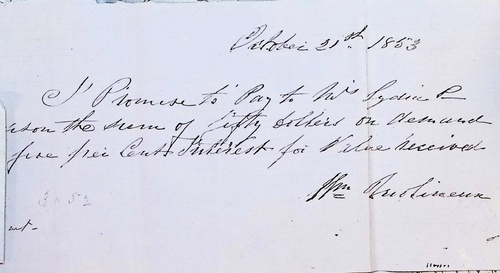 October 21st. 1853
I Promise to Pay to Mrs Lydia P
son the sum of Fifty Dollers on demand
five per Cent Interest for Value received
Wm
3052